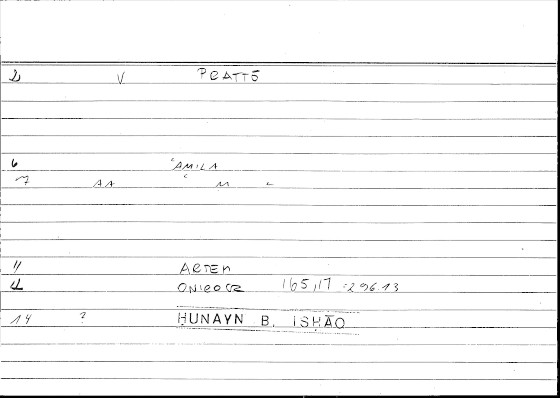 2 V PRATTŌ
6 ʿAMILA
7 AA ʿ M L
11 ARTEM
12 ONIROCR 165,17 = 296.13
14 ? ḤUNAYN B. ISḤĀQ